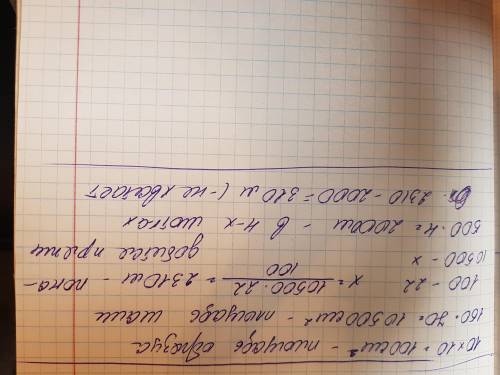 10 x 10 = 100 см² - площадь образца
150 · 70 = 10 500 см² - площадь шали
100 - 22 x = 10500 · 22 / 100 = 2310 м - пона-
10500 - x добится пряжи
500 · 4 = 2000 м - в 4-х мотках
2310 - 2000 = 310 м (- не хватает